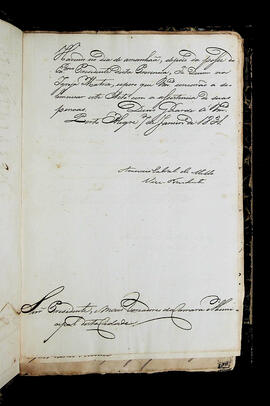 Havendo no dia de amanhã, depois da posse do
Presidente desta Provincia, Te Deum na
Igreja Matriz, espero que V
este Acto com a assistencia de suas
pessoas. Deos Guarde a
Porto Alegre 7 de Janeiro de 1831
Americo Cabral de Mello
Vice Presidente
Snr. Presidente, e mais Vereadores da Camara Muni
cipal desta Cidade